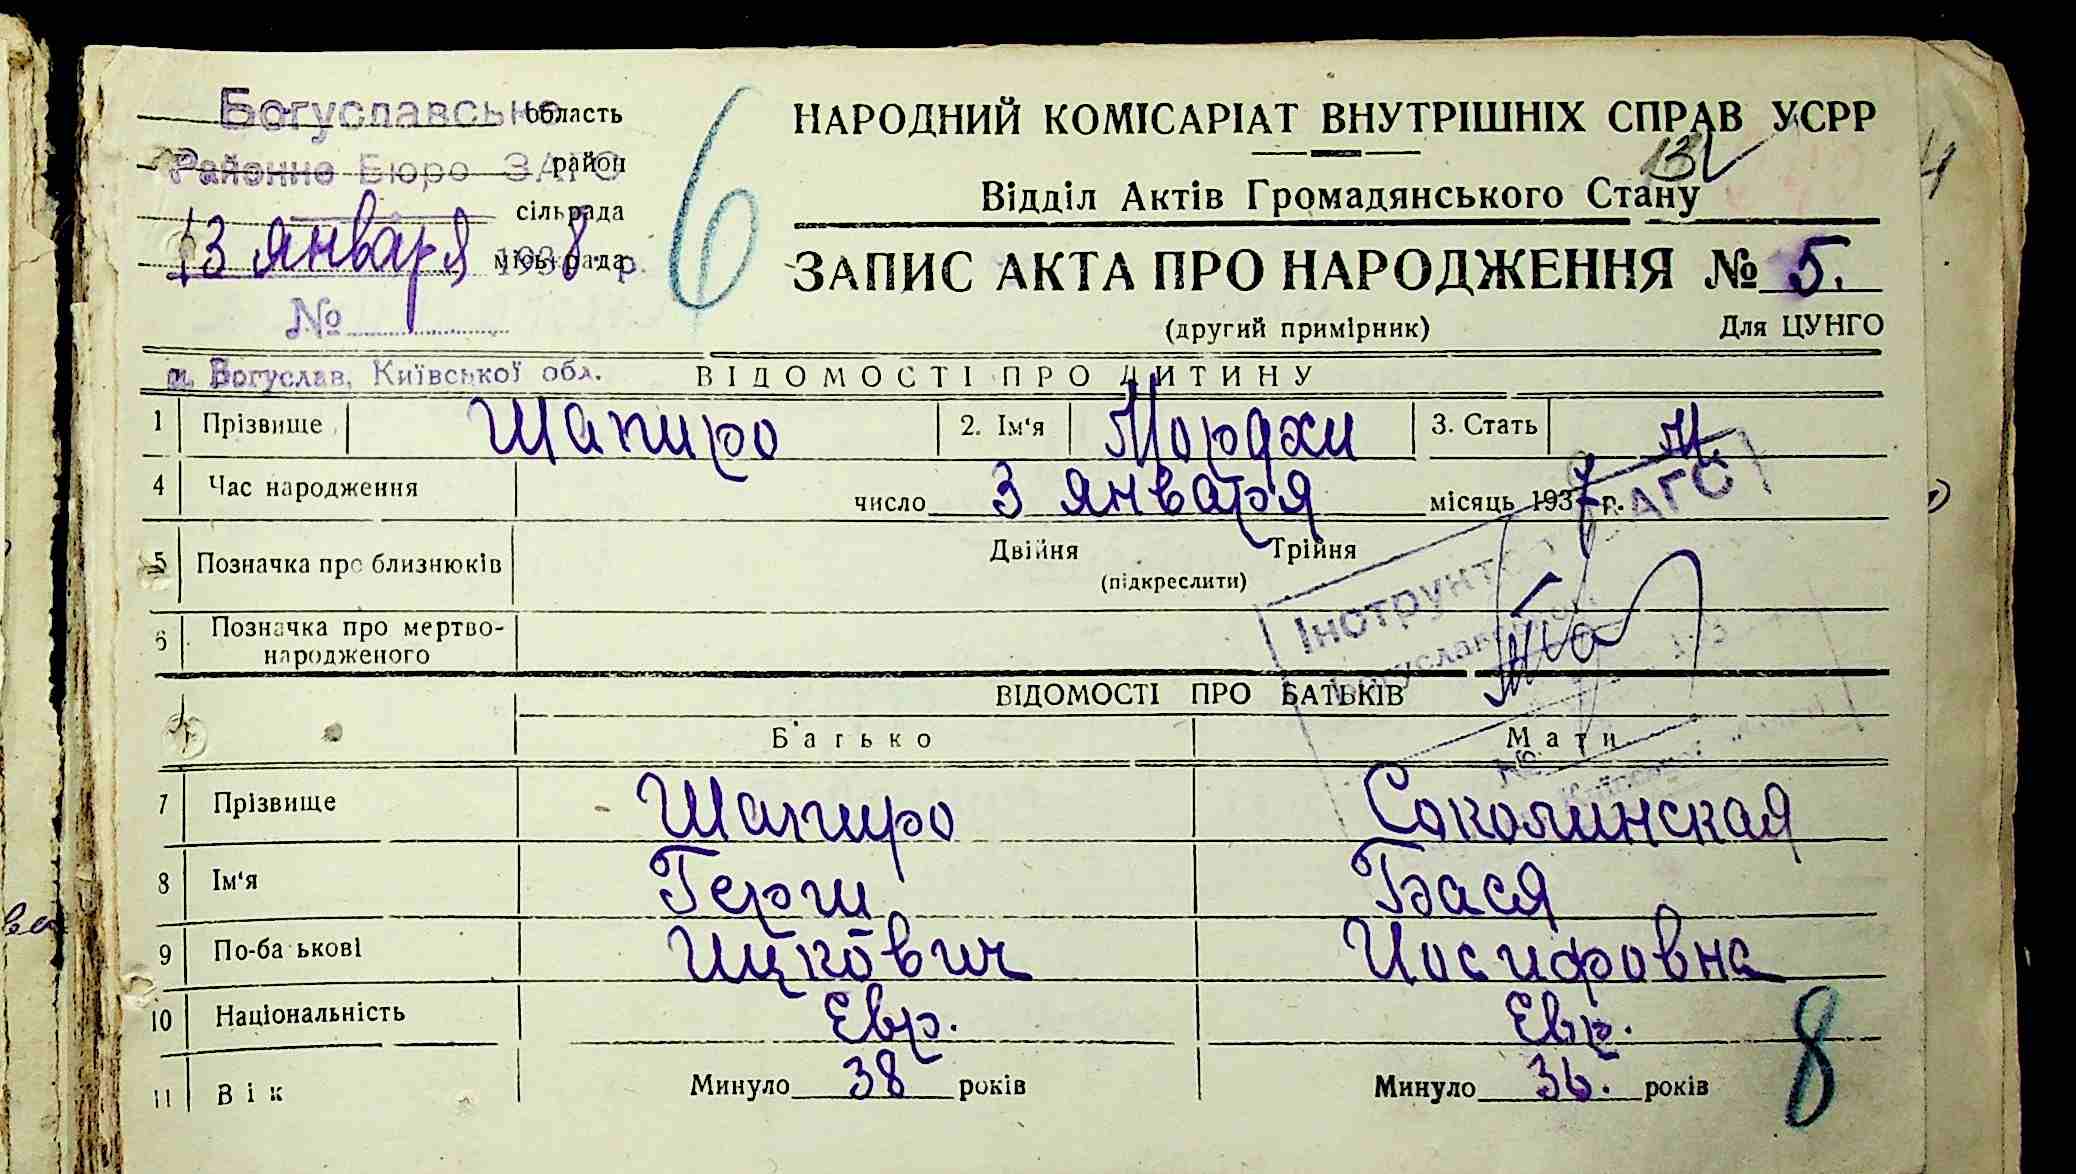 Богуславське область
Районне Бюро ЗАГС район
сільрада
13 января 1938 р. міськрада
№
м. Богуслав, Київської обл.
6
НАРОДНИЙ КОМІСАРІАТ ВНУТРІШНІХ СПРАВ УСРР
Відділ Актів Громадянського Стану
ЗАПИС АКТА ПРО НАРОДЖЕННЯ № 5.
(другий примірник) Для ЦУНГО
ВІДОМОСТІ ПРО ДИТИНУ
1 Прізвище Шапиро 2. Ім'я Мордхи 3. Стать М.
4 Час народження число 3 января місяць 1937 р.
5 Позначка про близнюків Двійня Трійня
(підкреслити)
6 Позначка про мертво-
народженого
Інструктор ЗАГС
ВІДОМОСТІ ПРО БАТЬКІВ
Батько Мати
7 Прізвище Шапиро Соколинская
8 Ім'я Герш Бася
9 По-ба ькові Ицкович Иосифовна
10 Національність Евр. Евр.
11 Вік Минуло 38 років Минуло 36. років
8